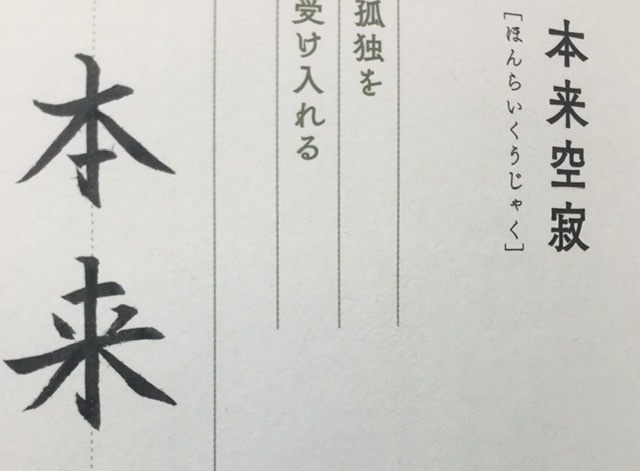 本来空寂
[ほんらいくうじゃく]
孤独を
受け入れる
本来